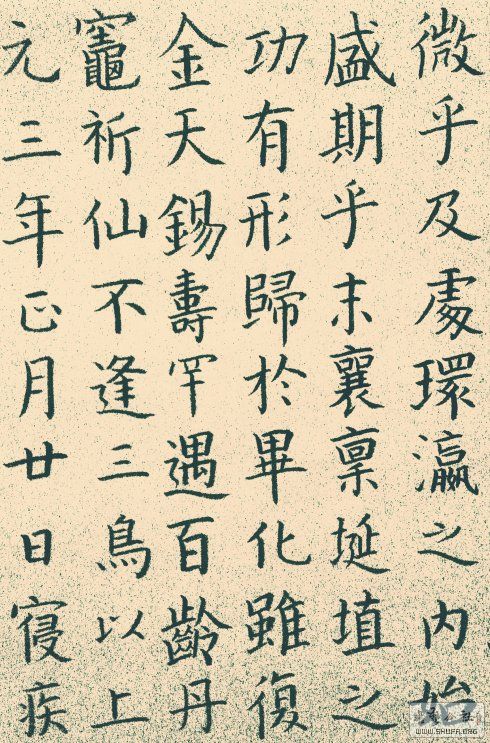 微乎及處環瀛之内始
盛期乎末襄稟埏埴之
功有形歸於畢化雖復
金天錫壽罕遇百齡丹
竈祈仙不逢三鳥以上
元三年正月廿日寢疾
WWW.SHUFA.ORG